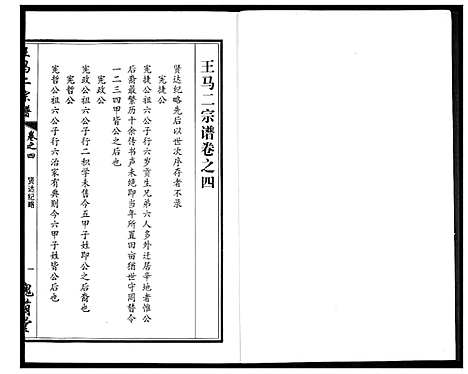 王马二宗谱卷之四
贤达纪略先后以世次序存者不录
宪捷公
宪捷公祖六公子行六岁贡生兄弟六人多外迁居辛地者惟公
后裔最繁历十余传书声未绝即当年所置田亩犹世守周替今
一二三四甲皆公之后也
宪政公
宪政公祖六公子行二积学未售今五甲子姓即公之后裔也
宪哲公
宪哲公祖六公子行六治家有典则今六甲子姓皆公后也
王马二宗谱
卷之四
贤达纪略
一
槐荫堂